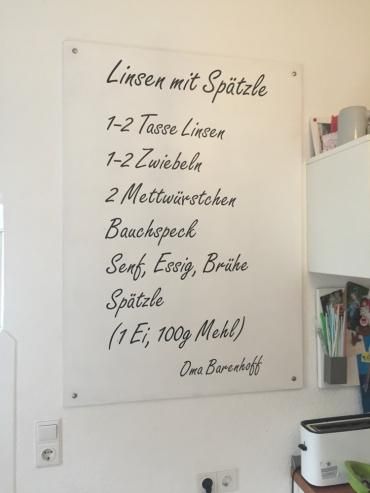 Linsen mit Spätzle
1-2 Tasse Linsen
1-2 Zwiebeln
2 Mettwürstchen
Bauchspeck
Senf, Essig, Brühe
Spätzle
(1 Ei, 100g Mehl)
Oma Barenhoff